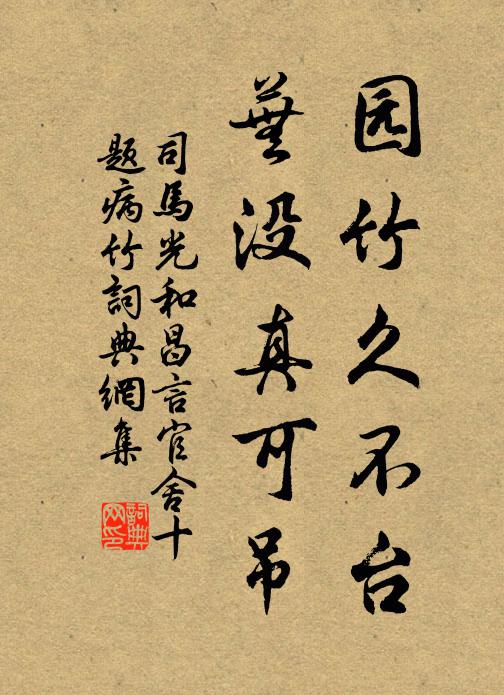 园竹久不台
蕪没真可吊
司馬光和昌言官舍十
題病竹詞典網集
詞典网印